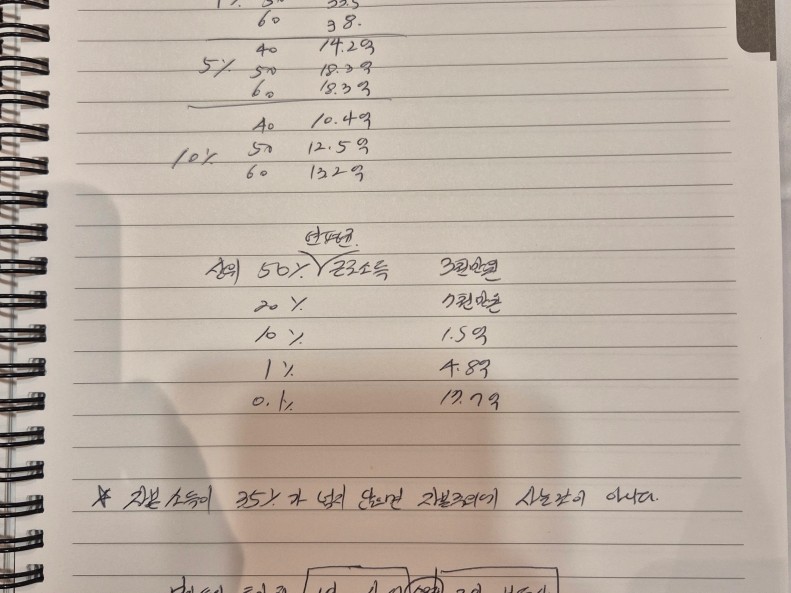 60 38.
40 14.2억
5% 50 18.3억
60 18.3억
40 10.4억
10% 50 12.5억
60 13.2억
연평균
상위 50% 근로소득 3천만원
20% 7천만원
10% 1.5억
1% 4.8억
0.1% 17.7억
* 자본소득이 35%가 넘지 않으면 자본주의에 사는것이 아니다.